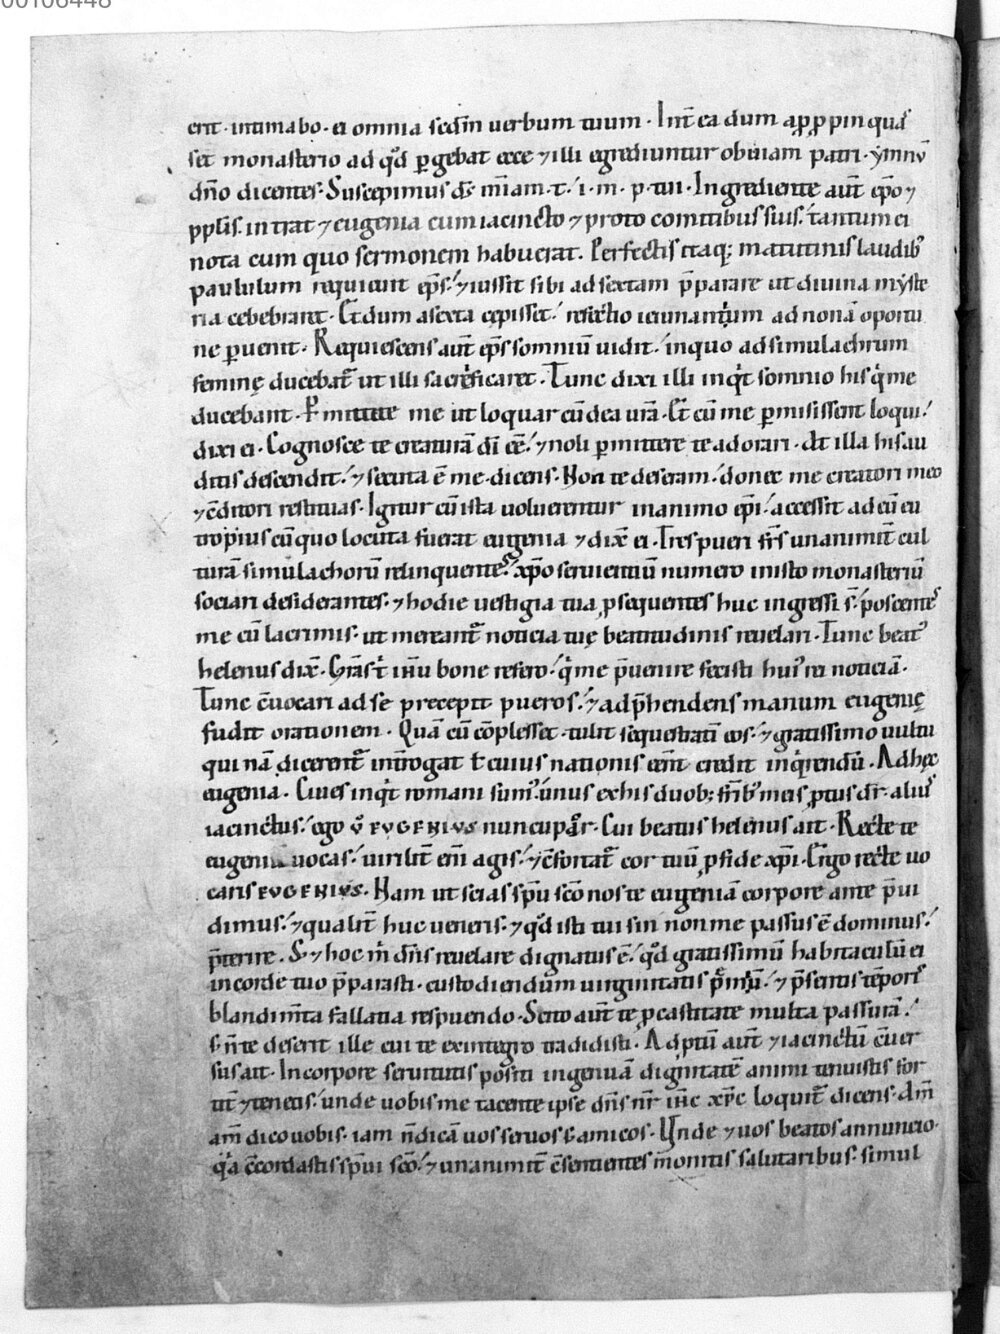 00106448
erit· intimabo· ei omnia scdm̄ uerbum tuum· Int̄ ea dum app̱ropinquas
set monasterio ad qd̓ ꝑgebat ecce ⁊ illi egrediuntur obuiam patri· ymnū
dn̄o dicentes· Suscepimus ds̄ m̄iam· t·/ i· m· p· tui· Ingrediente aut̄ ep̄o ⁊
pplis· intrat ⁊ eugenia cum iacincto ⁊ proto comitibus suis·/ tantum ei
nota cum quo sermonem habuerat. Perfectis itaq; matutinis laudib;
paululum requieuit ep̄s·/ ⁊ iussit sibi ad sextam p̄parare ut diuina myste
ria cebebraret· Et dum a sexta cępisset·/ refectio ieiunantium ad nonā oportu
ne ꝑuenit· Requiescens aut̄ ep̄s somniū uidit·/ in quo ad simulachrum
feminę ducebat̄ ut illi sacrificaret· Tunc dixi illi inqt̓ somnio his q̓ me
ducebant· Pmittite me ut loquar cū dea urā· Et cū me ꝑmisissent loqui·/
dixi ei· Cognosce te creaturā dī eē·/ ⁊ noli ꝑmittere te adorari· At illa his au
ditis descendit·/ ⁊ secuta ē me· dicens· Non te deseram·/ donec me creatori meo
⁊ c̄ditori restituas· Igitur cū ista uoluerentur in animo ep̄i·/ accessit ad eū eu
tropius cū quo locuta fuerat eugenia ⁊ dix̄ ei· Tres pueri frs̄ unanimit̄ cul
turā simulachorū relinquentes·/ xp̄o seruientiū numero in isto monasteriū
sociari desiderantes· ⁊ hodie uestigia tua ꝓsequentes huc ingressi s̄·/ poscentes
me cū lacrimis· ut mereant̄ noticia tuę beatitudinis reuelari· Tunc beat᾿
helenus dix̄· Grās t̓ ih̄u bone refero·/ q̓ me p̄uenire fecisti hui᾿ rei noticiā·
Tunc c̄uocari ad se precepit pueros·/ ⁊ adp̄hendens manum eugenię
fudit orationem· Quā cū cōplesset· tulit sequestrati eos·/ ⁊ gratissimo uultu
qui nā dicerent̄ int̄rogat t̄ cuius nationis eēnt credit inq̓rendū· Ad hęc
eugenia· Ciues inqt̓ romani sum᾿·/ unus ex his duob; frīb᾿ meis ꝓtus dr̄· alius
iacinctus·/ ego ū EVGENIVS nuncupor· Cui beatus helenus ait· Recte te
eugeniu uocas·/ uirilit̄ em̄ agis·/ ⁊ c̄fortat̄ cor tuū ꝓ fide xp̄i· Ergo recte uo
caris EVGENIVS· Nam ut scias sp̄u scō nos te eugeniā corpore ante p̄ui
dimus·/ ⁊ qualit̄ huc ueneris· ⁊ qd̓ isti tui sin non me passus ē dominus·/
p̄terire· S; ⁊ hoc m̓ dn̄s reuelare dignatus ē·/ qd̓ gratissimū habitaculū ei
in corde tuo p̄parasti· custodiendum uirginitatis p̄miū·/ ⁊ p̄sentis tēporis
blandim̄ta fallatia respuendo· Scito aut̄ te ꝓ castitate multa passurā·/
s; n̄ te deserit ille cui te ex integro tradidisti· Ad ꝓtū aut̄ ⁊ iacinctū c̄uer
sus ait· In corpore seruitutis positi ingenuā dignitatē animi tenuistis for
tit̄ ⁊ tenetis·/ unde uobis me tacente ipse dn̄s nr̄ ih̄c xp̄c loquit̄ dicens· Am̄
am̄ dico uobis· iam n̄ dicā uos seruos s; amicos· Unde ⁊ uos beatos annuncio·
qa̓ c̄cordastis sp̄ui scō·/ ⁊ unanimit̄ c̄sentientes monitis salutaribus· simul